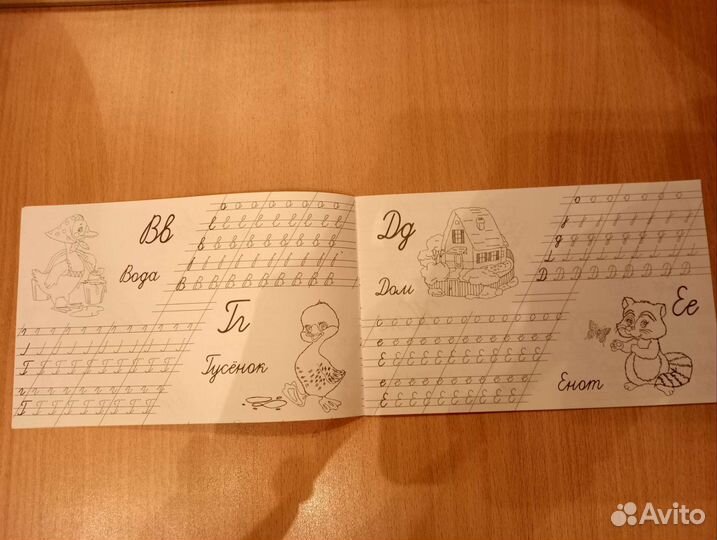 Вв
о о о о о о о о
в в в в в в в в
в в в в в в в в
В В В В В В В В В В
Вода
Гг
г г г г г г г г г
Г Г Г Г Г Г Г Г
г г г г г г г г г
Г Г Г Г Г Г Г Г
Гусёнок
Дд
о о о о о о о
д д д д д д д
Д Д Д Д Д Д Д Д
Дом
Ее
е е е е е е е е е е
Е Е Е Е Е Е Е Е Е Е
е е е е е е е е е е
Е Е Е Е Е Е Е Е Е
Енот
Avito